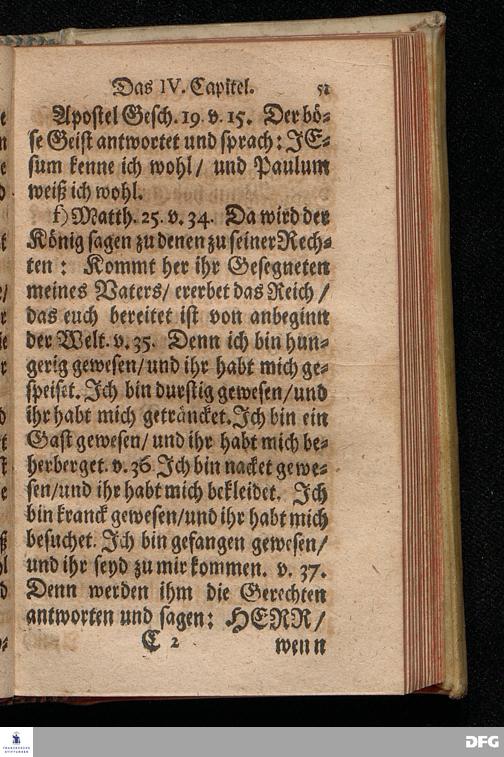 Das IV. Capitel. 51
Apostel Gesch. 19. v. 15. Der bö-
se Geist antwortet und sprach: JE-
sum kenne ich wohl / und Paulum
weiß ich wohl.
f) Matth. 25. v. 34. Da wird der
König sagen zu denen zu seiner Rech-
ten: Kommt her ihr Gesegneten
meines Vaters / ererbet das Reich /
das euch bereitet ist von anbeginn
der Welt. v. 35. Denn ich bin hun-
gerig gewesen / und ihr habt mich ge-
speiset. Ich bin durstig gewesen / und
ihr habt mich geträncket. Ich bin ein
Gast gewesen / und ihr habt mich be-
herberget. v. 36. Ich bin nacket gewe-
sen / und ihr habt mich bekleidet. Ich
bin kranck gewesen / und ihr habt mich
besuchet. Ich bin gefangen gewesen /
und ihr seyd zu mir kommen. v. 37.
Denn werden ihm die Gerechten
antworten und sagen: HERR /
C 2 wenn
FRANCKESCHE STIFTUNGEN
DFG